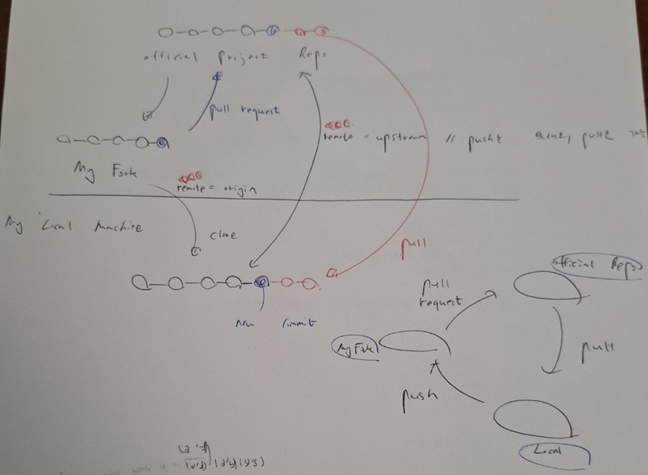 official Project Repo
pull request
My Fork
remote = origin
remote = upstream // push
My Local Machine
clone
pull
new commit
official Repo
pull
request
My Fork
pull
push
Local